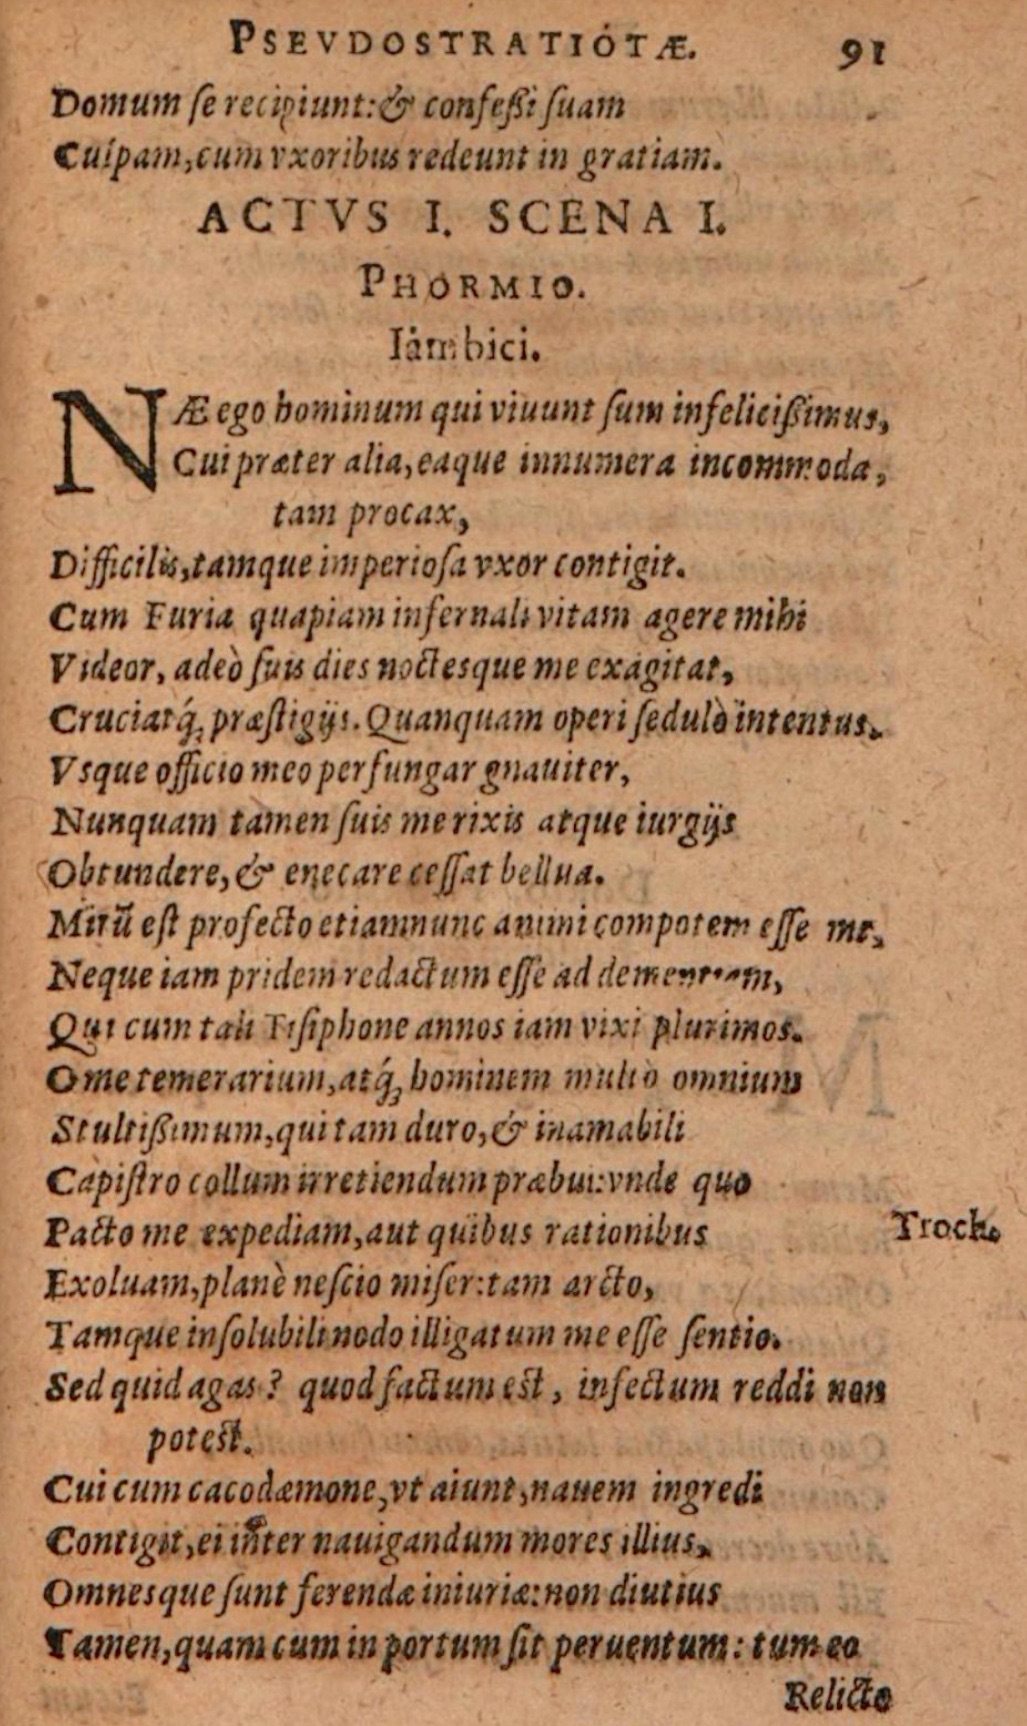 PSEVDOSTRATIÓTÆ. 91
Domum ſe recipiunt:& confeßi ſuam
Culpam,cum vxoribus redeunt in gratiam.
ACTVS I. SCENA I.
PHORMIO.
Iámbici.
NÆ ego hominum qui viuunt ſum infelicißimus,
Cui præter alia,eaque innumera incommoda,
tam procax,
Difficilis,tamque imperioſa vxor contigit.
Cum Furia quapiam infernali vitam agere mihi
Videor, adeò ſuis dies noctesque me exagitat,
Cruciatq́; præſtigijs. Quanquam operi ſedulò intentus,
Vsque officio meo perfungar gnauiter,
Nunquam tamen ſuis me rixis atque iurgijs
Obtundere,& enecare ceſſat bellua.
Mirũ eſt profecto etiamnunc animi compotem eſſe me,
Neque iam pridem redactum eſſe ad dementiam,
Qui cum tali Tiſiphone annos iam vixi plurimos.
O me temerarium,atq́; hominem multò omnium
Stultißimum,qui tam duro,& inamabili
Capiſtro collum irretiendum præbui:vnde quo
Pacto me expediam,aut quibus rationibus Troch.
Exoluam,planè neſcio miſer:tam arcto,
Tamque inſolubili nodo illigatum me eſſe ſentio.
Sed quid agas? quod factum eſt, infectum reddi non
poteſt.
Cui cum cacodæmone,vt aiunt,nauem ingredi
Contigit,ei inter nauigandum mores illius,
Omnesque ſunt ferendæ iniuriæ:non diutius
Tamen,quam cum in portum ſit peruentum: tum eo
Relicto